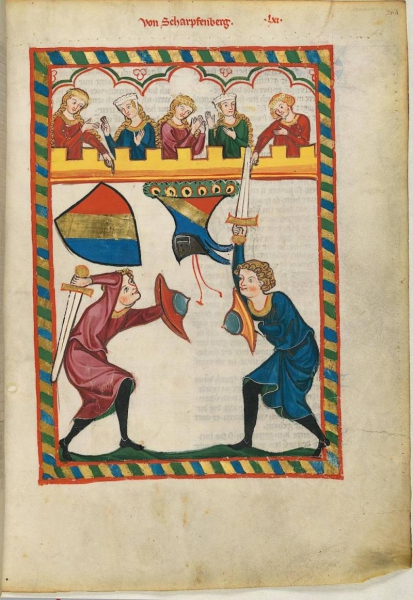 Von Scharpfenberg. ·lxi·